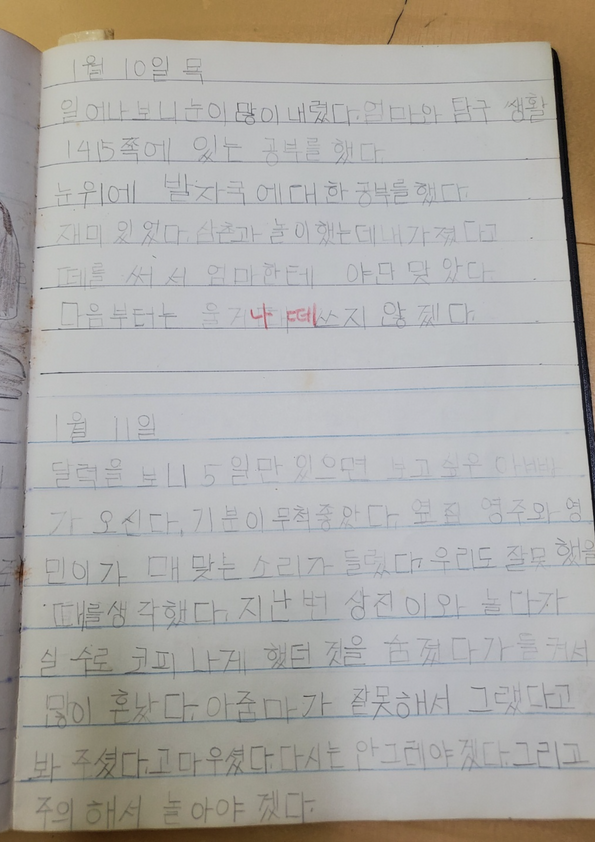 1월 10일 목
일어나 보니 눈이 많이 내렸다. 엄마와 탐구 생활
14 15쪽에 있는 공부를 했다.
눈위에 발자국에 대한 공부를 했다.
재미 있었다. 삼촌과 놀이 했는데 내가 졌다고
떼를 써서 엄마한테 야단 맞았다.
다음부터는 울거나 떼쓰지 않겠다.
1월 11일
달력을 보니 5일만 있으면 보고 싶은 아빠
가 오신다. 기분이 무척 좋았다. 옆집 영주와 영
민이가 매 맞는 소리가 들렸다. 우리도 잘못 했을
때를 생각했다. 지난번 상진이와 놀다가
실수로 코피 나게 했던 것을 숨겼다가 들켜서
많이 혼났다. 아줌마가 잘못해서 그랬다고
봐 주셨다. 고마우셨다. 다시는 안그레야겠다. 그리고
주의해서 놀아야 겠다.